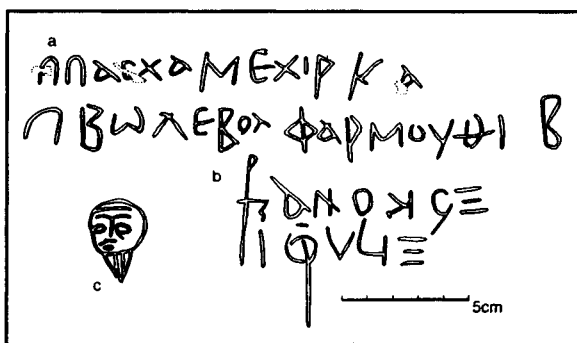 a
ⲡⲡⲁⲥⲭⲁ ⲙⲉⲭⲓⲣ ⲕⲁ
ⲡⲃⲱⲗ ⲉⲃⲟⲗ ⲫⲁⲣⲙⲟⲩⲑⲓ ⲃ
b
ⲁⲛⲟⲕ
c
5cm